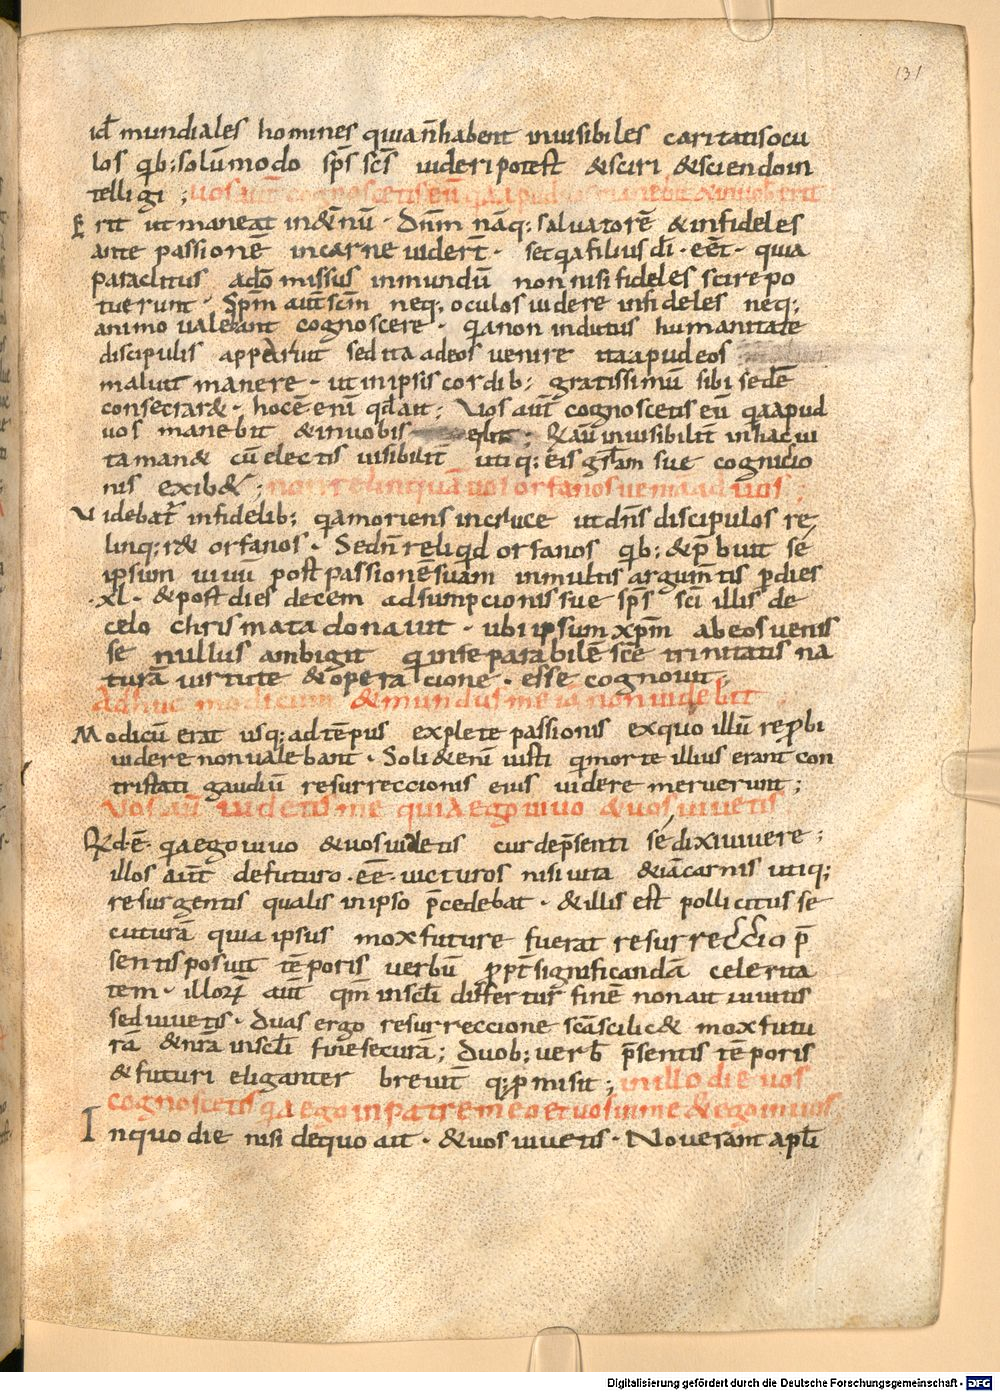 131
id̄ mundiales homines quian̄habent inuisibiles caritatisocu
los qb; solūmodo sp̄s sc̄s uideripotest &sciri &sciendoin
telligi ; uos aut̄ cognoscetis eū qa apud uos manebit &inuob erit
Erit ut maneat in&nū · Dn̄m nāq; saluatorē &infideles
ante passionē incarne uider̄t · setqafilius dī · eēt · quia
paraclitus adō missus inmundū non nisi fideles scire po
tuerunt · Sp̄m aut̄sc̄m neq; oculos uidere infideles neq;
animo ualebant cognoscere · qanon indutus humanitate
discipulis apperuit sed ita adeos uenire itaapud eos
maluit manere · ut inipsis cordib; gratissimū sibi sedē
consecrar& · hocē enī qd ait ; Uos aut̄ cognoscetis eū qaapud
uos manebit &inuobis erit ; Qau inuisibilit̄ inhac ui
taman& cū electis uisibilit̄ utiq; eis grām sue cognicio
nis exib& ; non relinquā uos orfanos ueniaaduos ;
Uidebat̄ infidelib; qamoriens incruce ut dn̄s discipulos re
linq;r& orfanos · Sedn̄ reliqd orfanos qb; &p̄buit se
ipsum uiuū post passionēsuam inmultis argum̄tis p̄dies
·xl· &post dies decem adsumpcionis sue sp̄s sc̄i illis de
celo chrismata donauit · ubi ipsum xp̄m abeos uenis
se nullus ambigit q inseparabilē scē trinitatis na
turā uirtute &operacione · esse cognouit ;
Adhuc modicum &mundus me iā non uidebit
Modicū erat usq; ad tēpus explete passionis exquo illū rep̄bi
uidere non ualebant · Soli &enī iusti qmorte illius erant con
tristati gaudiū resurreccionis eius uidere meruerunt ;
Uos aū uidetis me quiaego uiuo &uos uiuetis
Qd·ē· qaego uiuo &uos uiuetis cur dep̄senti sē dix uiuere ;
illos aut̄ defuturo · eē · uicturos nisi uita &iācarnis utiq;
resurgentis qualis inipso p̄cedebat · &illis est pollicitus se
cuturā quia ipsius mox future fuerat resurreccio p̄
sentis posuit tēporis uerbū pp̄t̄significandā celerita
tem · illorū aut̄ qm̄ insclī differtur finē non ait uiuitis
sed uiuetis · Duas ergo resurreccione sc̄āscilic& mox futu
rā &nrā insclī fine securā; Duob; uerb̄ p̄sentis tēporis
&futuri eliganter breuit̄ q;p̄misit ; in illo die uos
cognoscetis qa ego inpatre meo et uos inme &ego inuobis
Inquo die nisi dequo ait · &uos uiuetis · Nouerant apl̄i
Digitalisierung gefördert durch die Deutsche Forschungsgemeinschaft - DFG